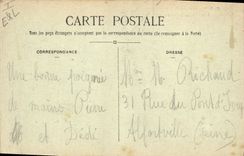 CARTE POSTALE
Tous les pays étrangers n'acceptent pas la correspondance au recto (Se renseigner à la Poste)
CORRESPONDANCE
ADRESSE
Une bonne poignée
de mains Pierre
et Dédé
Mr M Richaud
31 Rue du Pont d'Ivry
Alfortville (Seine)